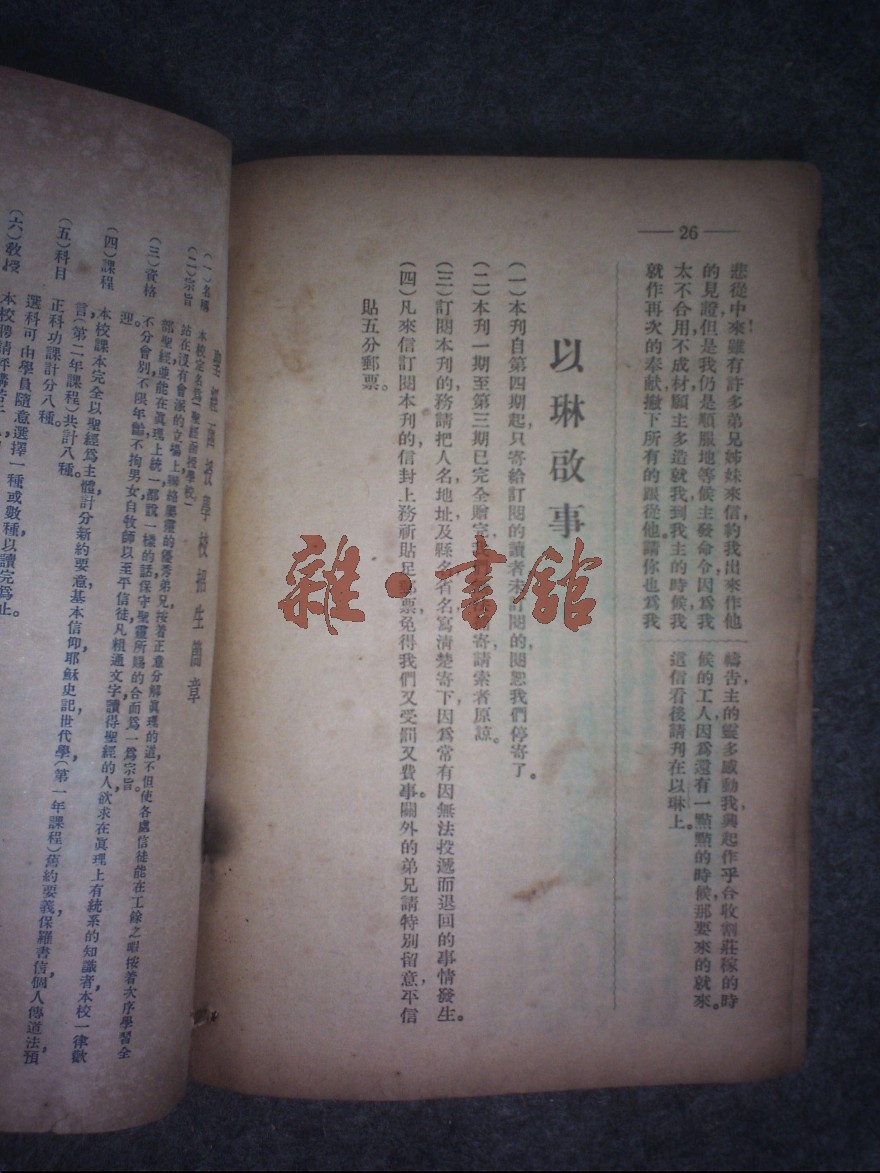 26
悲從中來雖有許多弟兄姊妹來信約我出來作他
的見證，但是我仍是順服地等候主發命令，因爲我
太不合用，不成材，願主多造就我，到我主的時候，我
就作再次的奉献，撇下所有的跟從他。請你也爲我
禱告，主的靈多感動我，興起作乎合收割莊稼的時
候的工人，因爲還有一點點的時候，那要來的就來。
這信看後請刊在以琳上。
以琳啟事
（一）本刊自第四期起，只寄給訂閱的讀者，未訂閱的，閱恕我們停寄了。
（二）本刊一期至第三期已完全贈完，寄，請索者原諒。
（三）訂閱本刊的，務請把人名，地址，及縣名，省名，寫清楚寄下，因爲常有因無法投遞而退回的事情發生。
（四）凡來信訂閱本刊的信封上務祈貼足郵票，免得我們又受罰又費事。關外的弟兄請特別留意，平信
貼五分郵票。
聖經函授學校招生簡章
（一）名稱　本校定名爲「聖經函授學校」
（二）宗旨　站在沒有會派的立場上，聯絡屬靈的優秀弟兄，按着正意分解眞理的道，不但使各處信徒能在工餘之暇按着次序學習全
部聖經，並能在眞理上統一，都說一樣的話，保守聖靈所賜的合而爲一爲宗旨。
（三）資格　不分會別，不限年齡，不拘男女，自牧師以至平信徒，凡粗通文字，讀得聖經的人，欲求在眞理上有統系的知識者，本校一律歡
迎。
（四）課程　本校課本完全以聖經爲主體，計分新約要意，基本信仰，耶穌史記，世代學，（第一年課程）舊約要義，保羅書信，個人傳道法，預
言（第二年課程）共計八種。
（五）科目　正科功課計分八種。
選科可由學員隨意選擇一種或數種，以讀完爲止。
（六）敎授　本校聘請